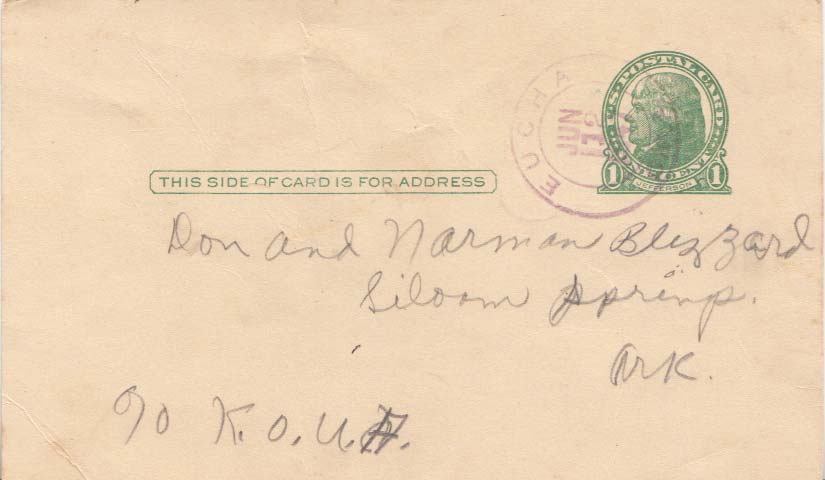 U.S. POSTAL CARD
ONE CENT
1 JEFFERSON 1
EUCHA
JUN
12
THIS SIDE OF CARD IS FOR ADDRESS
Don and Norman Blizzard
Siloam Springs.
Ark.
c/o K.O.U.H.